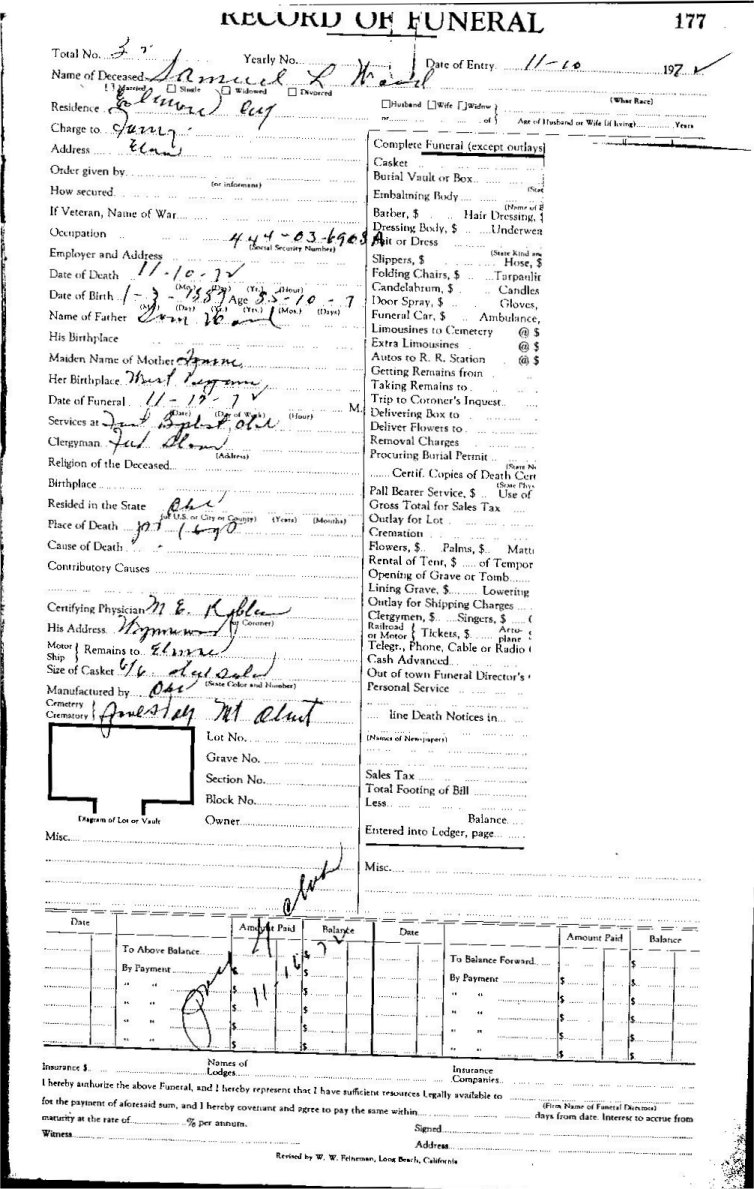 RECORD OF FUNERAL 177
Total No. Yearly No. Date of Entry 11-10 1972
Name of Deceased Samuel L Ward
[ ] Married [ ] Single [ ] Widowed [ ] Divorced
Residence Elmore City
[ ] Husband [ ] Wife [ ] Widow or of (What Race) Age of Husband or Wife (if living) Years
Charge to
Address
Order given by (or informant)
How secured
If Veteran, Name of War
Occupation
(Social Security Number)
Employer and Address
Date of Death 11-10-72
(Mo.) (Day) (Yr.) (Hour)
Date of Birth 1-3-1887 Age 85-10-7
(Mo.) (Day) (Yr.) (Yrs.) (Mos.) (Days)
Name of Father
His Birthplace
Maiden Name of Mother
Her Birthplace West
Date of Funeral 11-12-72 M.
(Date) (Day of Week) (Hour)
Services at First Baptist
Clergyman
(Address)
Religion of the Deceased
Birthplace
Resided in the State
(or U.S. or City or County) (Years) (Months)
Place of Death
Cause of Death
Contributory Causes
Certifying Physician M E
(or Coroner)
His Address Wynnewood
Motor Ship } Remains to Elmore
Size of Casket 6/6
(State Color and Number)
Manufactured by
Cemetery Crematory } Mt Olivet
Lot No.
Grave No.
Section No.
Block No.
Owner
Diagram of Lot or Vault
Misc.
Complete Funeral (except outlays)
Casket
Burial Vault or Box
(Stat
Embalming Body
(Name of E
Barber, $ Hair Dressing, $
Dressing Body, $ Underwea
Suit or Dress
(State Kind and
Slippers, $ Hose, $
Folding Chairs, $ Tarpaulin
Candelabrum, $ Candles
Door Spray, $ Gloves,
Funeral Car, $ Ambulance,
Limousines to Cemetery @ $
Extra Limousines @ $
Autos to R. R. Station @ $
Getting Remains from
Taking Remains to
Trip to Coroner's Inquest
Delivering Box to
Deliver Flowers to
Removal Charges
Procuring Burial Permit
(State N
Certif. Copies of Death Cert
(State Phys
Pall Bearer Service, $ Use of
Gross Total for Sales Tax
Outlay for Lot
Cremation
Flowers, $ Palms, $ Matt
Rental of Tent, $ of Tempor
Opening of Grave or Tomb
Lining Grave, $ Lowering
Outlay for Shipping Charges
Clergymen, $ Singers, $
Railroad or Motor } Tickets, $ Aero- plane
Telegr., Phone, Cable or Radio
Cash Advanced
Out of town Funeral Director's
Personal Service
line Death Notices in
(Names of Newspapers)
Sales Tax
Total Footing of Bill
Less
Balance
Entered into Ledger, page
Misc.
Date Amount Paid Balance Date Amount Paid Balance
To Above Balance To Balance Forward $
By Payment $ $ By Payment $ $
" " $ $ " " $ $
" " $ $ " " $ $
" " $ $ " " $ $
" " $ $ " " $ $
11-16 72
Insurance $ Names of Lodges Insurance Companies
I hereby authorize the above Funeral, and I hereby represent that I have sufficient resources legally available to
(Firm Name of Funeral Directors)
for the payment of aforesaid sum, and I hereby covenant and agree to pay the same within days from date. Interest to accrue from
maturity at the rate of % per annum. Signed
Witness Address
Revised by W. W. Feineman, Long Beach, California